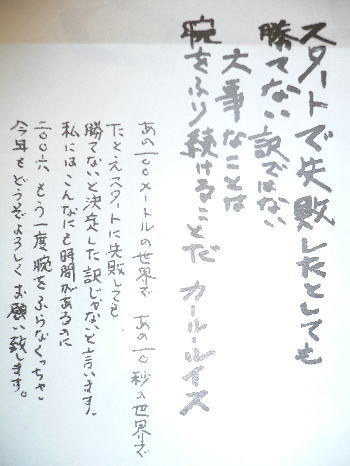 スタートで失敗したとしても
勝てない訳ではない
大事なことは
腕をふり続けることだ カール・ルイス
あの一〇〇メートルの世界で あの一〇秒の世界で
たとえスタートに失敗しても
勝てないと決定した訳じゃないと言います。
私にはこんなにも時間があるのに
二〇〇六 もう一度腕をふらなくっちゃ
今年もどうぞよろしくお願い致します。